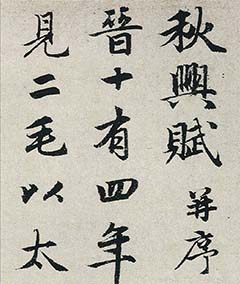 秋興賦并序
晉十有四年
見二毛以太